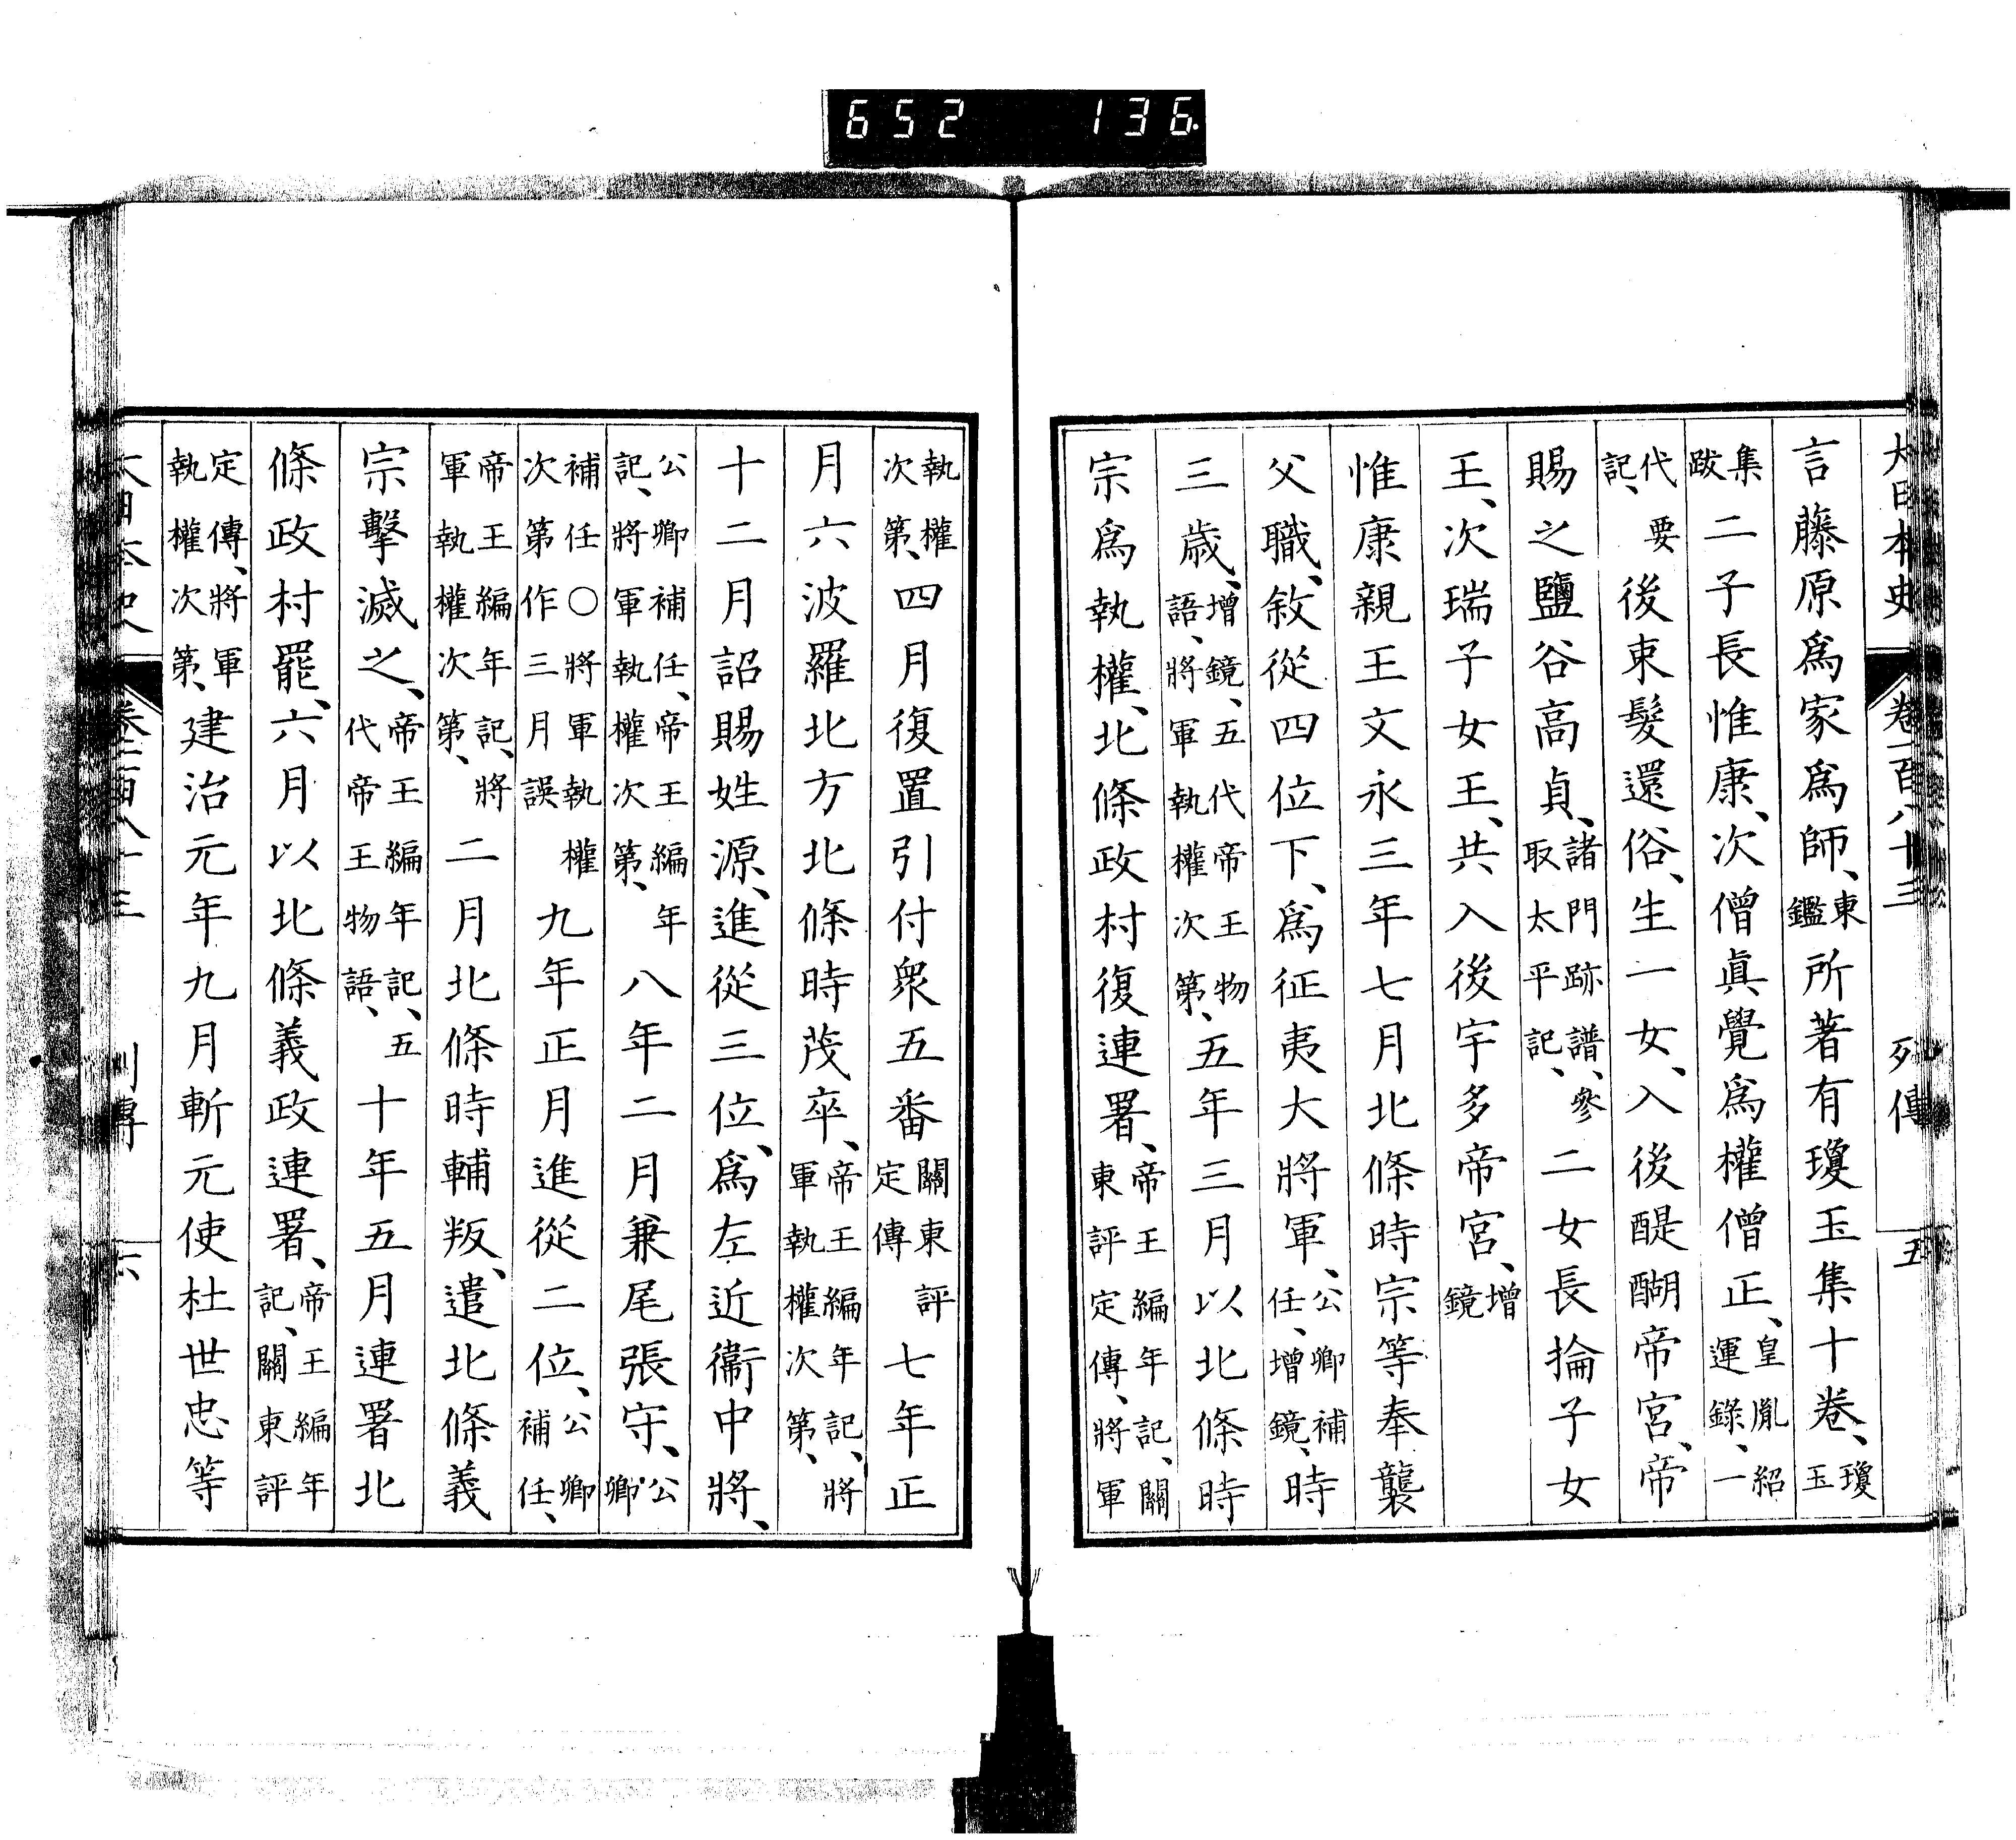 652 136.
大日本史 卷一百八十三 列傳 五
言藤原爲家爲師、東鑑所著有瓊玉集十卷、瓊玉
集跋二子長惟康、次僧眞覺爲權僧正、皇胤紹運錄、一
代要記、後東髮還俗、生一女、入後醍醐帝宮、帝
賜之鹽谷高貞、諸門跡譜、參取太平記、二女長掄子女
王、次瑞子女王、共入後宇多帝宮、增鏡
惟康親王文永三年七月北條時宗等奉襲
父職、敘從四位下、爲征夷大將軍、公卿補任、增鏡、時
三歲、增鏡、五代帝王物語、將軍執權次第、五年三月以北條時
宗爲執權、北條政村復連署、帝王編年記、關東評定傳、將軍
執權次第、四月復置引付衆五番關東評定傳七年正
月六波羅北方北條時茂卒、帝王編年記、將軍執權次第、
十二月詔賜姓源、進從三位、爲左近衞中將、
公卿補任、帝王編年記、將軍執權次第、八年二月兼尾張守、公卿
補任〇將軍執權次第作三月誤九年正月進從二位、公卿補任、
帝王編年記、將軍執權次第、二月北條時輔叛、遣北條義
宗擊滅之、帝王編年記、五代帝王物語、十年五月連署北
條政村罷、六月以北條義政連署、帝王編年記、關東評
定傳、將軍執權次第、建治元年九月斬元使杜世忠等
大日本史 卷一百八十三 列傳 六